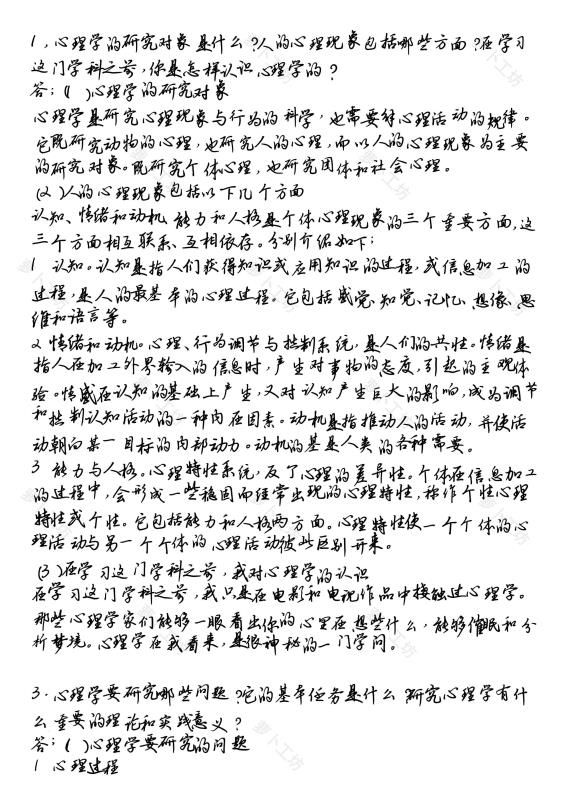 1，心理学的研究对象是什么？人的心理现象包括哪些方面？在学习
这门学科之前，你是怎样认识心理学的？
答：（ ）心理学的研究对象
心理学是研究心理现象与行为的科学，也需要对心理活动的规律。
它既研究动物的心理，也研究人的心理，而以人的心理现象为主要
的研究对象。既研究个体心理，也研究团体和社会心理。
（2）人的心理现象包括以下几个方面
认知、情绪和动机、能力和人格是个体心理现象的三个重要方面，这
三个方面相互联系、互相依存。分别介绍如下：
1 认知。认知是指人们获得知识或应用知识的过程，或信息加工的
过程，是人的最基本的心理过程。它包括感觉、知觉、记忆、想像、思
维和语言等。
2 情绪和动机。心理、行为调节与控制系统，是人们的共性。情绪是
指人在加工外界输入的信息时，产生对事物的态度，引起的主观体
验。情感在认知的基础上产生，又对认知产生巨大的影响，成为调节
和控制认知活动的一种内在因素。动机是指推动人的活动，并使活
动朝向某一目标的内部动力。动机的基是人类的各种需要。
3 能力与人格。心理特性系统，反了心理的差异性。个体在信息加工
的过程中，会形成一些稳固而经常出现的心理特性，称作个性心理
特性或个性。它包括能力和人格两方面。心理特性使一个个体的心
理活动与另一个个体的心理活动彼此区别开来。
（3）在学习这门学科之前，我对心理学的认识
在学习这门学科之前，我只是在电影和电视作品中接触过心理学。
那些心理学家们能够一眼看出你的心里在想些什么，能够催眠和分
析梦境。心理学在我看来，是很神秘的一门学问。
3．心理学要研究哪些问题？它的基本任务是什么？研究心理学有什
么重要的理论和实践意义？
答：（ ）心理学要研究的问题
1 心理过程
萝卜工坊